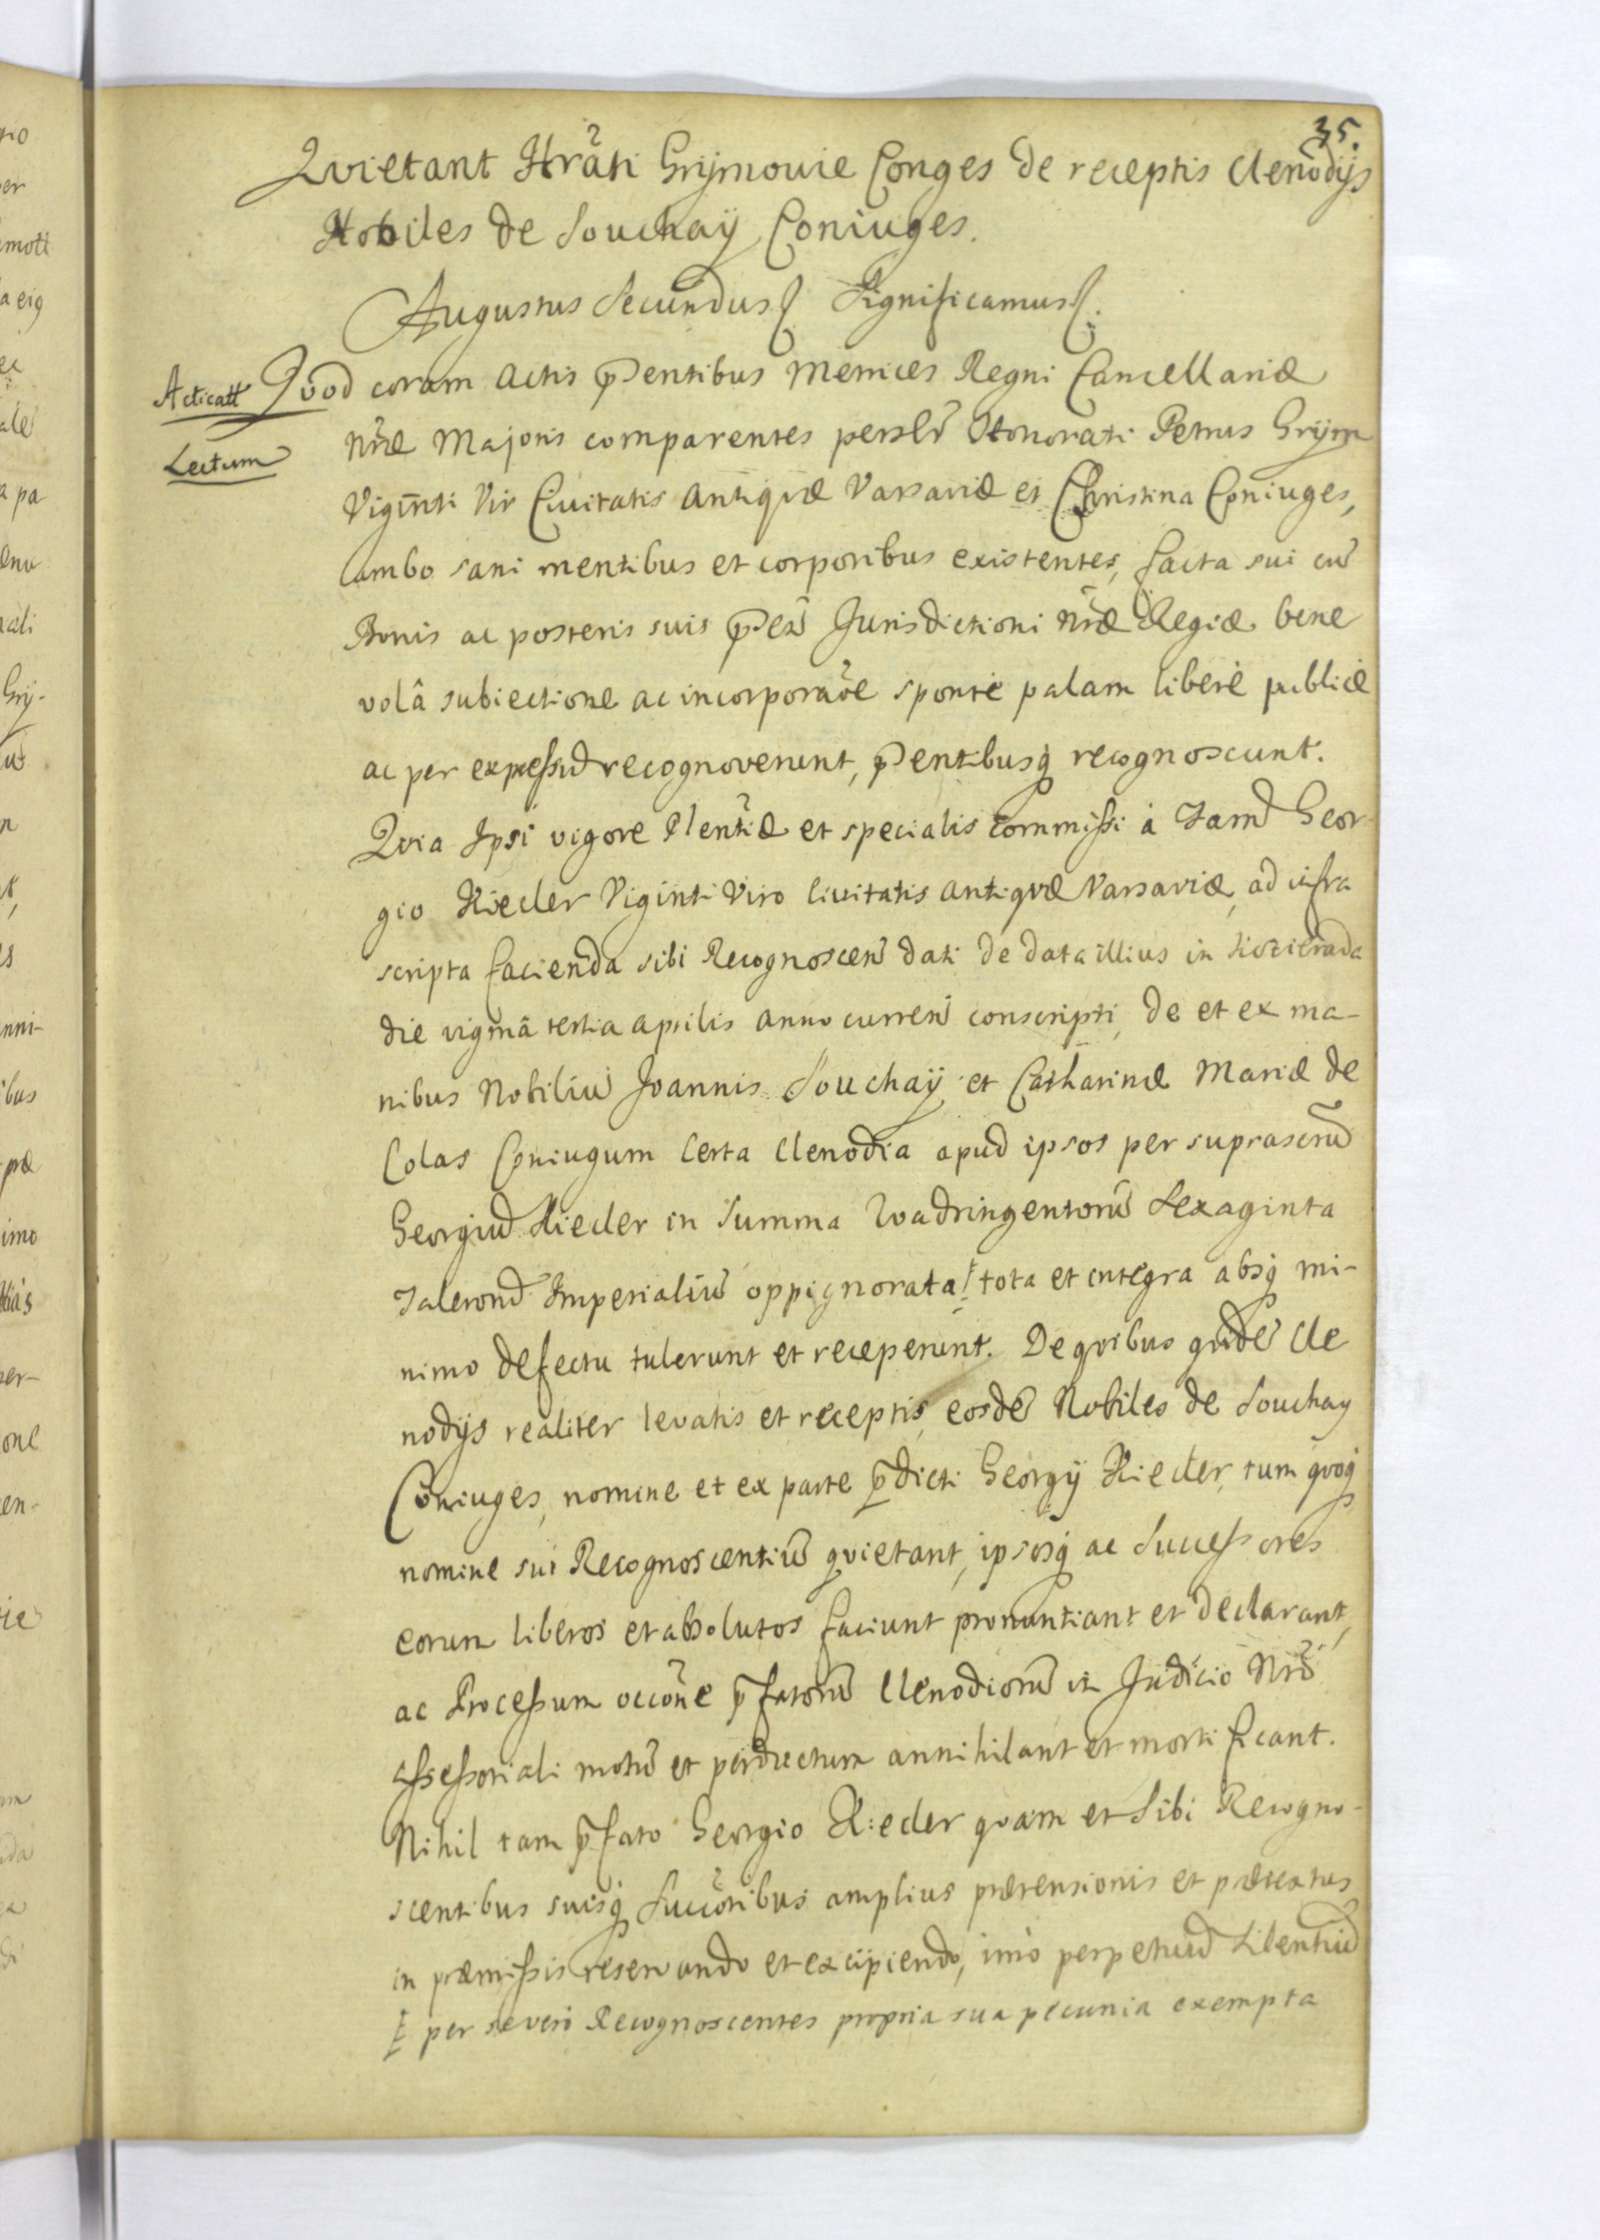 35.
Qvietant Hrãti Grÿmowie Conges de receptis Clenodÿs
Nobiles de Souchaÿ Coniuges.
Augustus Secundus Significamus.
Acticatt Qvod coram Actis pentibus Metrices Regni Cancellariæ
Lectum
Nrae Majoris comparentes persler Honorati Petrus Grÿm
Viginti Vir Civitatis Antiqvæ Varsaviæ et Christina Coniuges,
ambo sani mentibus et corporibus existentes, facta sui cũ
Bonis ac posteris suis Jurisdictioni Nræ Regiæ bene
volâ subiectione ac incorporaõe sponte palam libere publicè
ac per expressũ recognoverunt, pentibusq recognoscunt.
Qvia Ipsi vigore Plentiæ et specialis commissi à Famõ Geor
gio Rieder Viginti Viro Civitatis Antiqvæ Varsaviæ, ad infra
scripta facienda sibi Recognoscen dati de data illius in
die vigmâ tertia Aprilis Anno curren conscripti, de et ex ma-
nibus Nobiliũ Joannis Souchaÿ et Catharinæ Mariæ de
Colas Coniugum Certa Clenodia apud ipsos per suprascrũ
Georgiũ Rieder in Summa Qvadringentorũ Sexaginta
Talerorũ Imperialiũ oppignorata tota et integra absq mi-
nimo defectu tulerunt et receperunt. De qvibus qvidẽ Cle
nodÿs realiter levatis et receptis, eosdẽ Nobiles de Souchay
Coniuges, nomine et ex parte pdicti Georgÿ Rieder, tum qvoq
nomine sui Recognoscentiũ qvietant, ipsosq ac Successores
eorum liberos et absolutos faciunt pronuntiant et declarant,
ac Processum occõne pfatorũ Clenodiorũ in Judicio Nrõ
Assessoriali motũ et perductum annihilant et mortificant.
Nihil tam pfato Georgio Rieder qvam et Sibi Recogno-
scentibus suisq Succõribus amplius prætensionis et prætextus
in præmissis reservando et excipiendo, imò perpetuũ Silentiũ
per severi Recognoscentes propria sua pecunia exempta